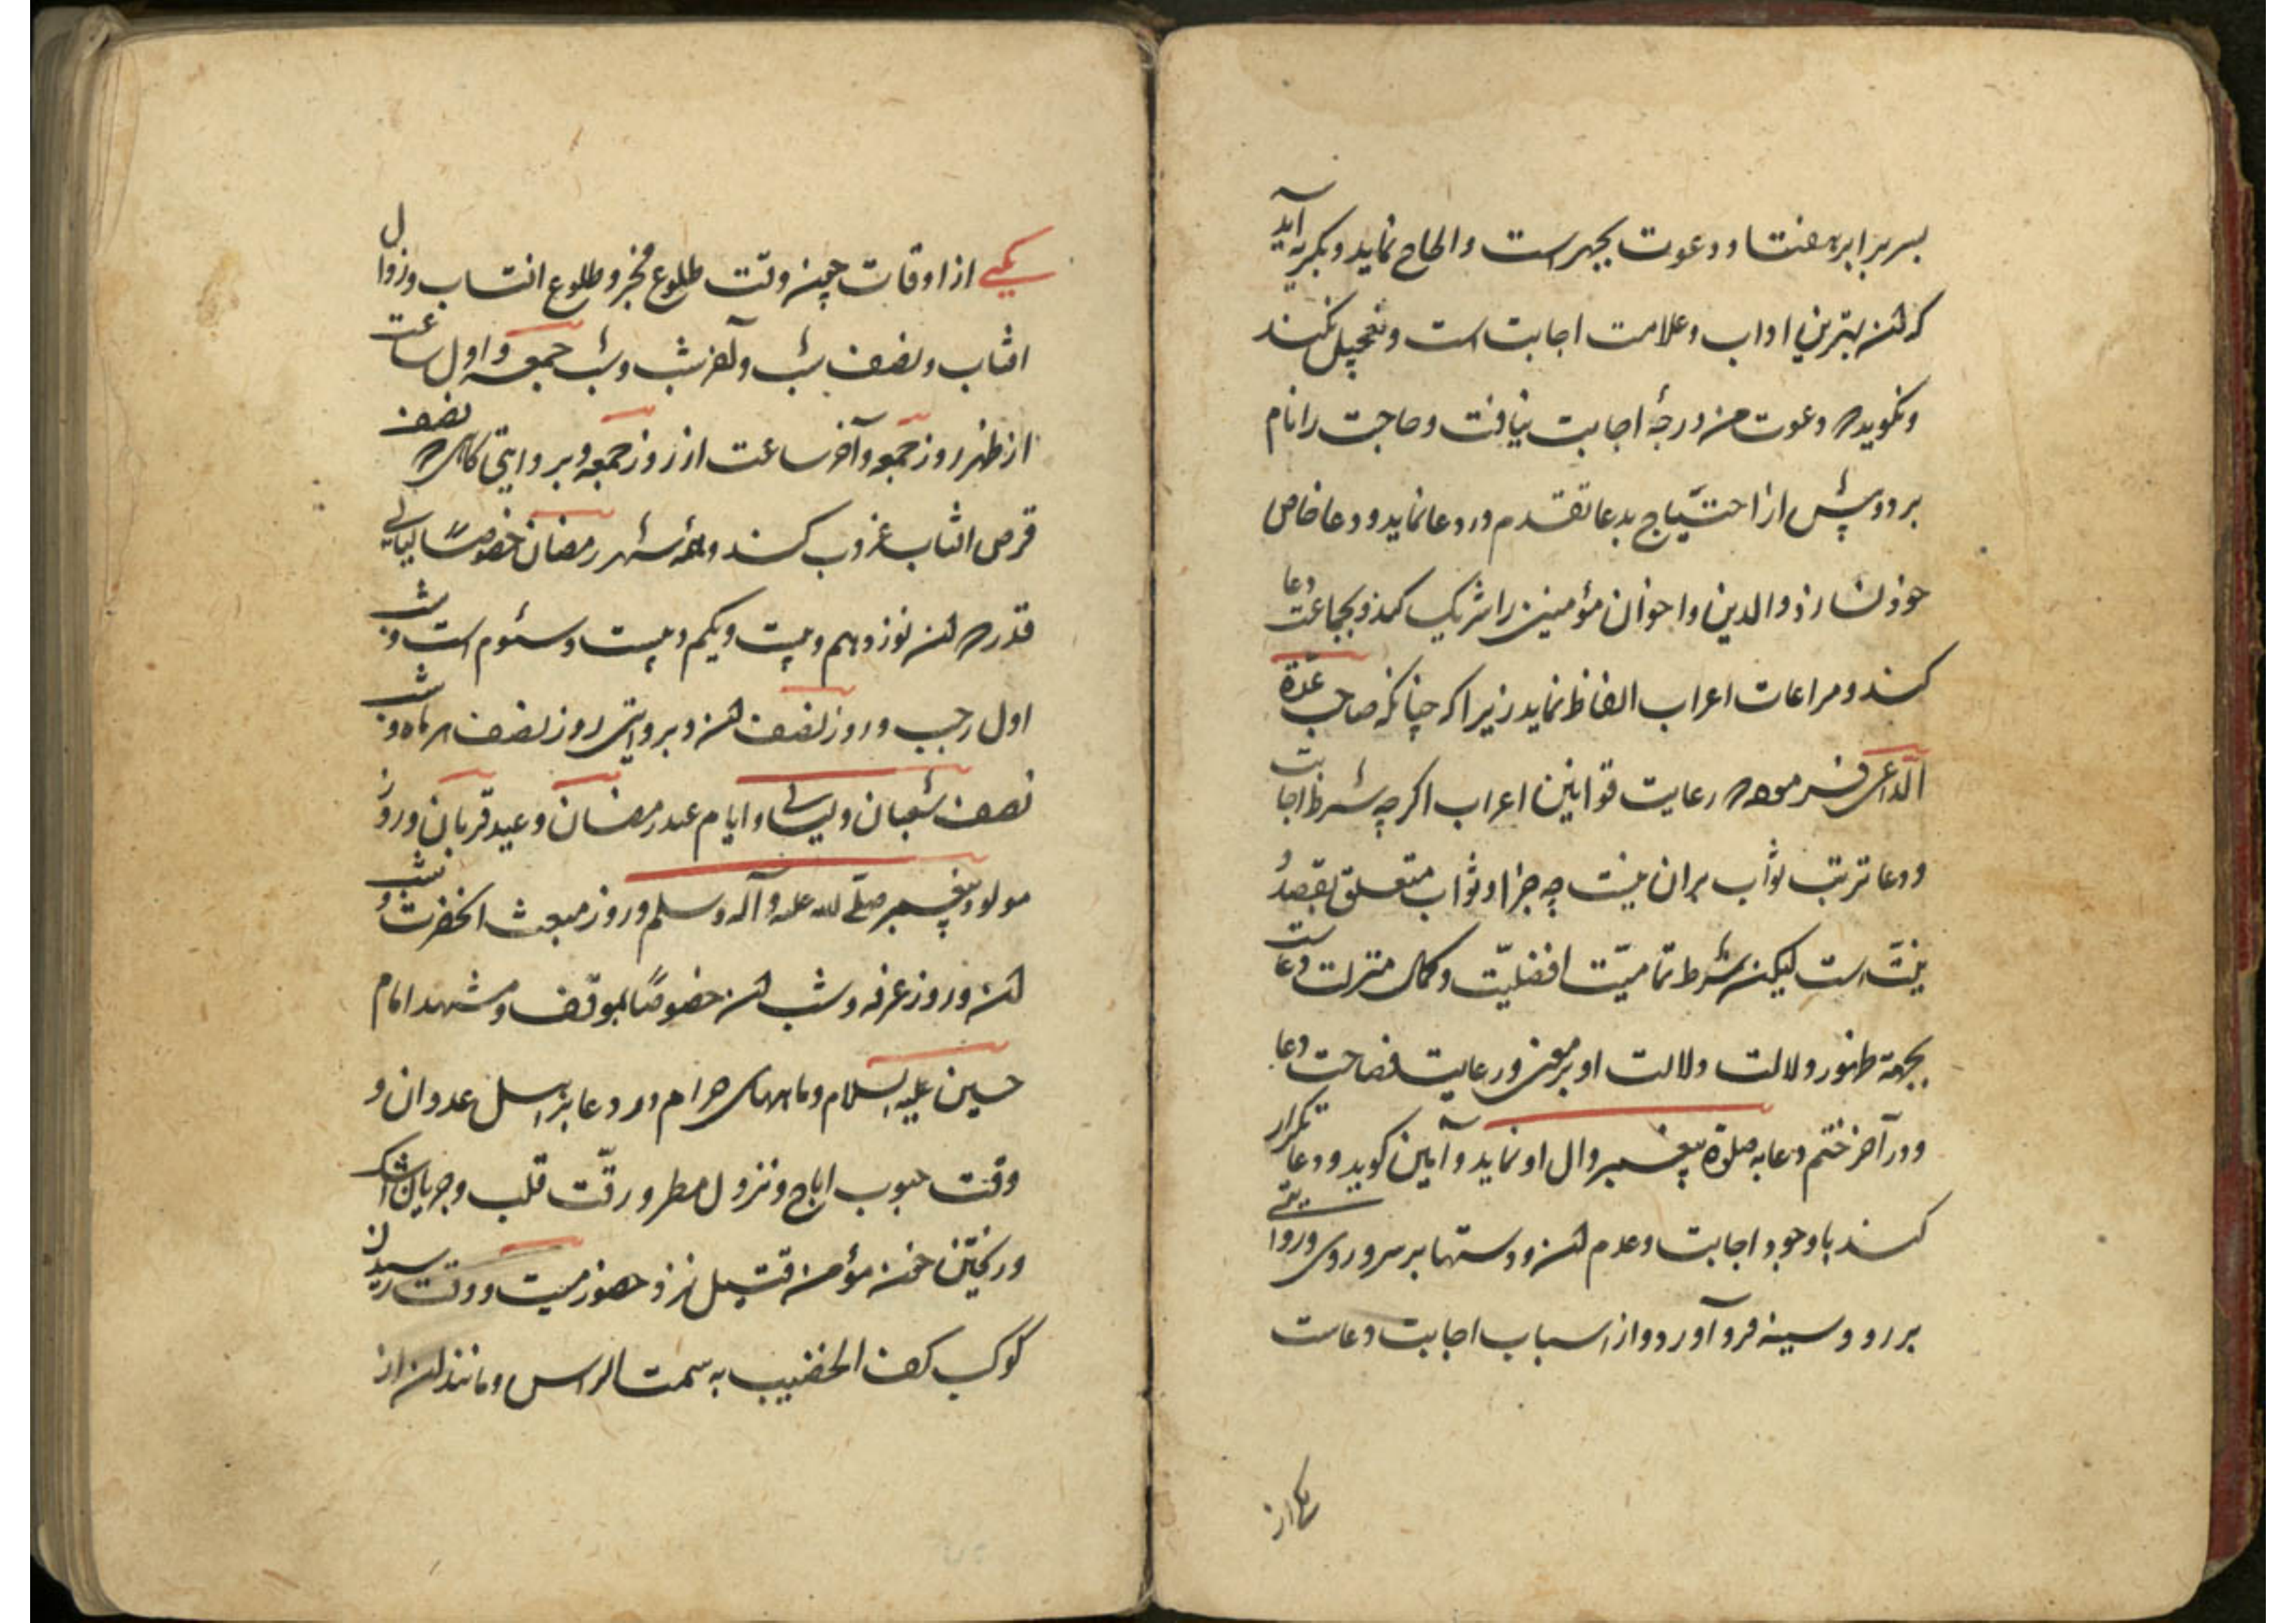 بسر برابر هفتاد دعوت بجهر است و الحاح نماید و بگریه آید
که آن بهترین اداب و علامت اجابت است و تعجیل نکند
و نکوید که دعوت من درجهٔ اجابت نیافت و حاجت را نام
برد و پیش از احتیاج بدعا تقدم در دعا نماید و دعا خاص
خود نسازد و الدین و اخوان مؤمنین را شریک کند و بجماعت دعا
کند و مراعات اعراب الفاظ نماید زیرا که چنانکه صاحب عدّة
الداعی فرموده که رعایت قوانین اعراب اگرچه شرط اجابت
و دعا ترتب ثواب بران نیست چه جزا و ثواب متعلق بقصد و
نیّت است لیکن شرط تمامیّت افضلیّت و کمال منزلت دعاست
بجهة ظهور دلالت ولالت او بر معنی و رعایت فصاحت دعا
و در آخر ختم دعا به صلوة پیغمبر و ال او نماید و آمین کوید و دعا تکرار
کند با وجود اجابت و عدم آن و دستها بر سر و روی و روایتی
بر رو و سینه فرو آورد و از اسباب اجابت دعاست
یکی از
یکی از اوقات چنین وقت طلوع فجر و طلوع افتاب و زوال
افتاب و نصف شب و آخر شب و شب جمعه و اول ساعت
از ظهر روز جمعه و آخر ساعت از روز جمعه و بر وایتی کاهی که نصف
قرص افتاب غروب کند و همهٔ شهر رمضان خصوصًا لیالی
قدر که آن نوزدهم و بیست و یکم و بیست و سئوم است و شب
اول رجب و روز نصف آن و بروایتی روز نصف هر ماه و شب
نصف شعبان و لیالی و ایام عید رمضان و عید قربان و روز
مولود پیغمبر صلی الله علیه و آله و سلم و روز مبعث انحضرت و شب
آن و روز عرفه و شب آن خصوصًا بموقف و مشهد امام
حسین علیه السلام و ماههای حرام در دعا بر اهل عدوان و
وقت هبوب ارياح و نزول مطر و رقّت قلب و جریان اشک
و ریختن خون مؤمن قتیل نزد حضور میت و وقت رسیدن
کوکب کف الخضیب به سمت الراس و مانند آن از